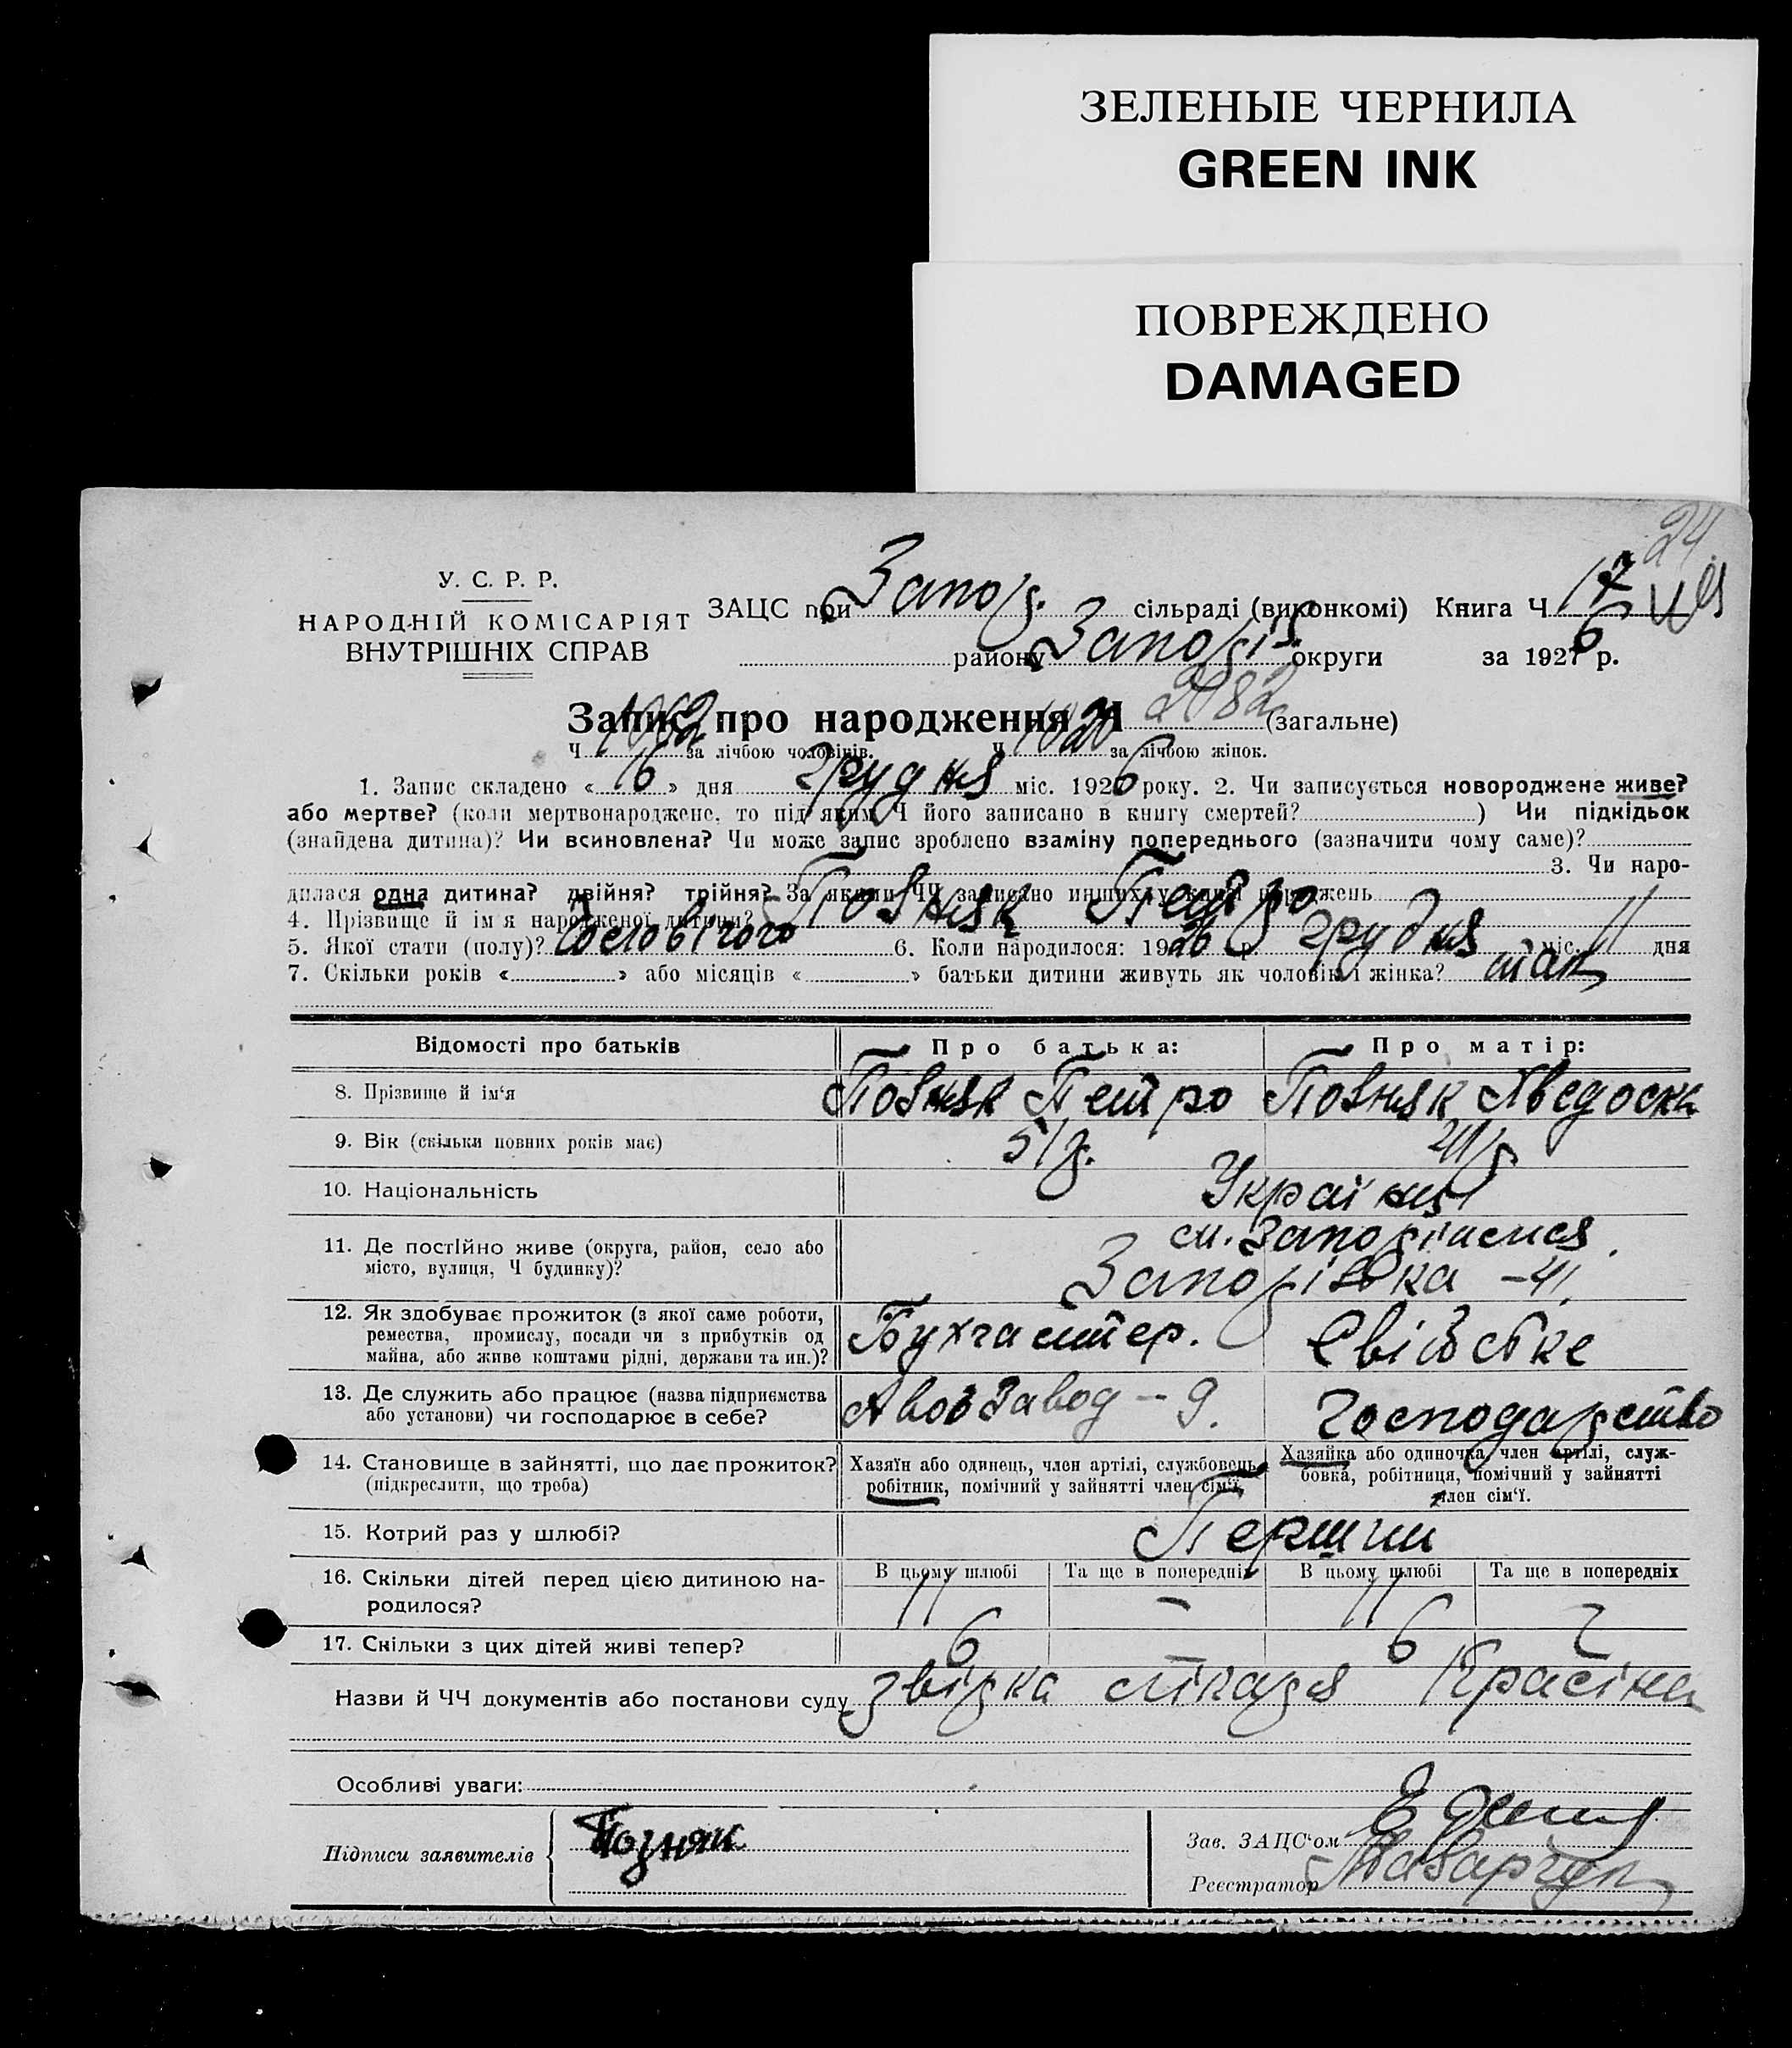 ЗЕЛЕНЫЕ ЧЕРНИЛА
GREEN INK
ПОВРЕЖДЕНО
DAMAGED
24
У. С. Р. Р.
НАРОДНІЙ КОМІСАРІЯТ
ВНУТРІШНІХ СПРАВ
ЗАЦС при Запор. сільраді (виконкомі) Книга Ч 17
району Запоріз округи за 1926 р.
Запис про народження Ч 2082 (загальне)
Ч 1062 за лічбою чоловіків. Ч 1020 за лічбою жінок.
1. Запис складено « 16 » дня Грудня міс. 1926 року. 2. Чи записується новороджене живе?
або мертве? (коли мертвонароджене, то під яким Ч його записано в книгу смертей? ) Чи підкідьок
(знайдена дитина)? Чи всиновлена? Чи може запис зроблено взаміну попереднього (зазначити чому саме)?
3. Чи наро-
дилася одна дитина? двійня? трійня? За якими ЧЧ записано инших у книзі народжень
4. Прізвище й імʼя народженої дитини? Позняк Педро
5. Якої стати (полу)? Чоловічого 6. Коли народилося: 1926 р. Грудня міс. 11 дня
7. Скільки років « » або місяців « » батьки дитини живуть як чоловік і жінка? так
Відомості про батьків Про батька: Про матір:
8. Прізвище й імʼя Позняк Петро Позняк Явдоска
9. Вік (скільки повних років має) 51 р. 41 р
10. Національність Україні
11. Де постійно живе (округа, район, село або
місто, вулиця, Ч будинку)?
м. Запоріжжя
Запорізька - 41.
12. Як здобуває прожиток (з якої саме роботи,
ремества, промислу, посади чи з прибутків од
майна, або живе коштами рідні, держави та ин.)?
Бухгалтер. Свійське
13. Де служить або працює (назва підприємства
або установи) чи господарює в себе?
Авоз Завод - 9. Господарство
14. Становище в зайнятті, що дає прожиток?
(підкреслити, що треба)
Хазяїн або одинець, член артілі, службовець,
робітник, помічний у зайнятті член сімʼї.
Хазяйка або одиночка, член артілі, служ-
бовка, робітниця, помічний у зайнятті
член сімʼї.
15. Котрий раз у шлюбі? Перший
16. Скільки дітей перед цією дитиною на-
родилося?
В цьому шлюбі Та ще в попередніх В цьому шлюбі Та ще в попередніх
11 - 11
17. Скільки з цих дітей живі тепер? 6 - 6
Назви й ЧЧ документів або постанови суду звірка лікаря Красіна
Особливі уваги:
Підписи заявителів Позняк
Зав. ЗАЦСʼом
Реєстратор